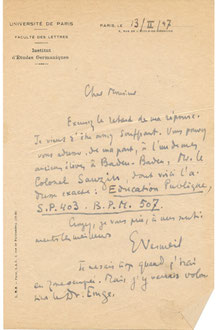 UNIVERSITÉ DE PARIS
FACULTÉ DES LETTRES
Institut
d'Études Germaniques
PARIS LE 13/II/47
5, RUE DE L'ÉCOLE-DE-MÉDECINE
Cher Monsieur
Excusez le retard de ma réponse.
Je viens d'être assez souffrant. Vous pouvez
vous adresser, de ma part, à l'un de mes
anciens élèves à Baden-Baden, M. le
Colonel Sauzin, dont voici l'a-
dresse exacte : Education Publique,
S.P. 403. B.P.M. 507.
Croyez, je vous prie, à mes senti-
ments les meilleurs
E Vermeil
Je ne sais pas quand j'irai
en Mais j'y verrais volon
le Dr.